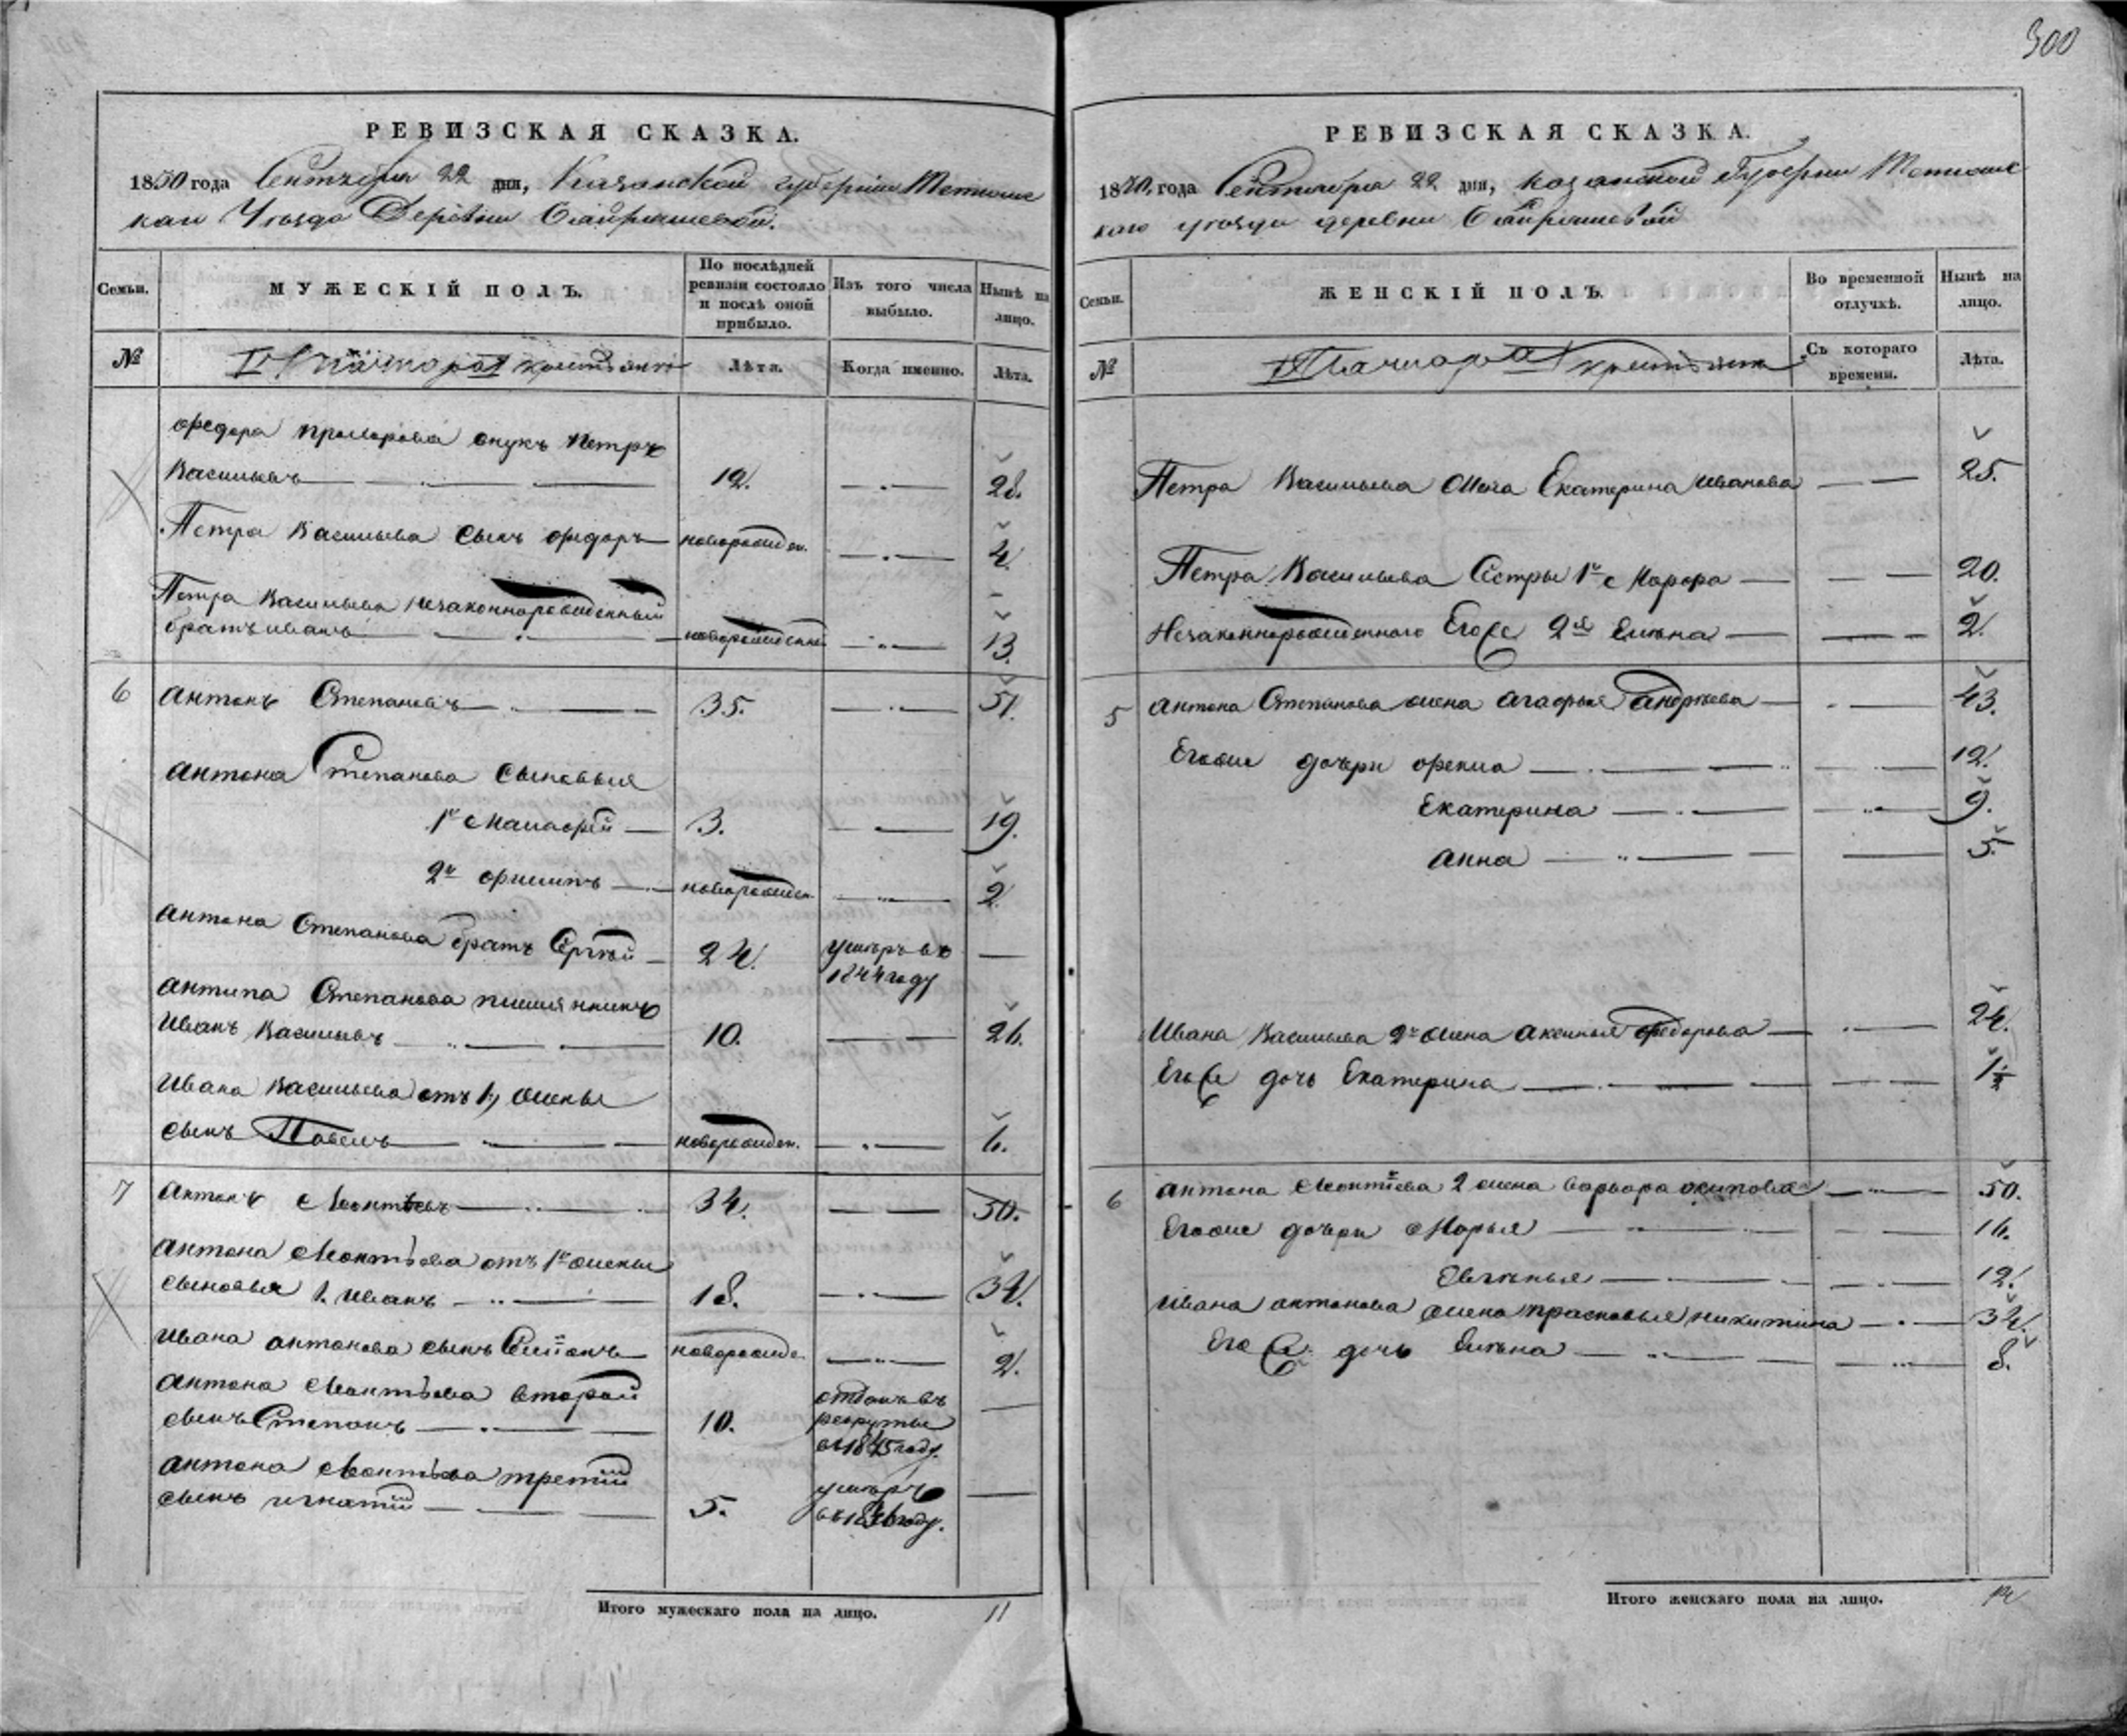 300
РЕВИЗСКАЯ СКАЗКА.
1850 года Сентября 22 дня, Казанской губернии Тетюшс
каго Уезда Деревни
Семьи.
МУЖЕСКІЙ ПОЛЪ.
По послѣдней ревизіи состояло и послѣ оной прибыло.
Изъ того числа выбыло.
Нынѣ на лицо.
№
крестьянъ
Лѣта.
Когда именно.
Лѣта.
Федора внукъ Петръ
Васильевъ 12. 28.
Петра Васильева сынъ Федоръ новорожден. 4.
Петра Васильева незаконнорожденный
братъ Иванъ новорожденный 13.
6 Антонъ Степановъ 35. 51.
Антона Степанова сыновья
1й Матфей 3. 19.
2й Филипъ новорожден. 2
Антона Степанова братъ Сергѣй 24. умеръ въ
1844 году
Антипа Степанова племянникъ
Иванъ Васильевъ 10. 26.
Ивана Васильева отъ 1й жены
сынъ Павелъ новорожден. 6.
7 Антонъ Леонтьевъ 34. 50.
Антона Леонтьева отъ 1й жены
сыновья 1. Иванъ 18. 34.
Ивана Антонова сынъ новорожде. 2.
Антона Леонтьева второй
сынъ Степанъ 10. отданъ въ
рекруты
въ 1845 году.
Антона Леонтьева третій
сынъ Игнатій 5. умеръ
въ 1836 году.
Итого мужескаго пола на лицо. 11
РЕВИЗСКАЯ СКАЗКА.
1850 года Сентября 22 дня, Казанской Губернии Тетюшс
каго уезда деревни
Семьи.
ЖЕНСКІЙ ПОЛЪ.
Во временной отлучкѣ.
Нынѣ на лицо.
№
крестьянъ
Съ котораго времени.
Лѣта.
Петра Васильева жена Екатерина Иванова 25.
Петра Васильева Сестры 1я 20.
Незаконнорожденного Его Се 2я Елена 2.
5 Антона Степанова жена Агафья Андреева 43.
Егоже дочери Фекла 12.
Екатерина 9.
Анна 5.
Ивана Васильева 2я жена Аксинья Федорова 24.
Его Се дочь Екатерина 1½
6 Антона Леонтьева 2 жена Варвара Осипова 50.
Егоже дочери Марья 16.
Евгенья 12.
Ивана Антонова жена Прасковья Никитина 34.
Его Се дочь Елена 8.
Итого женскаго пола на лицо.